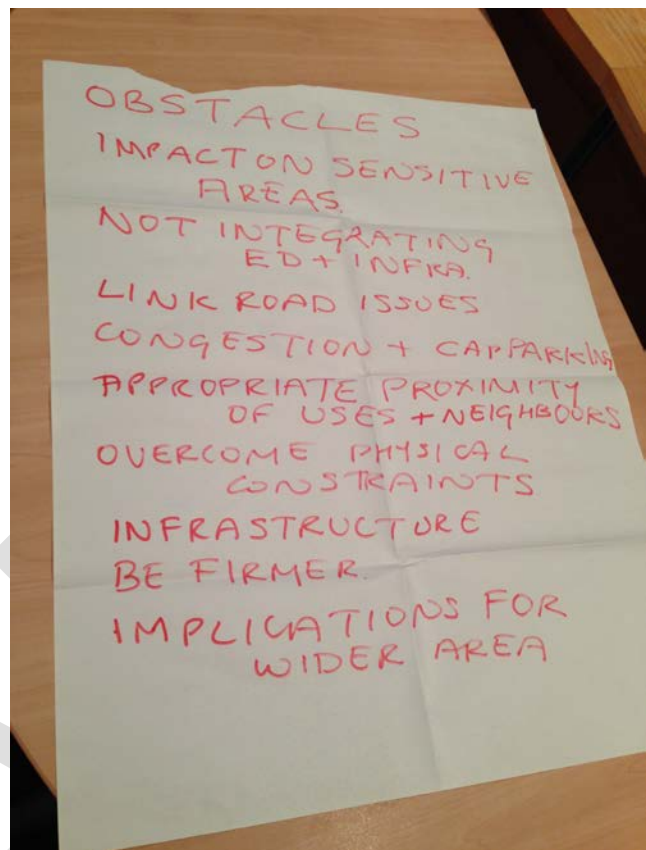 OBSTACLES
IMPACT ON SENSITIVE
AREAS.
NOT INTEGRATING
ED + INFRA.
LINK ROAD ISSUES
CONGESTION + CAR PARKING
APPROPRIATE PROXIMITY
OF USES + NEIGHBOURS
OVERCOME PHYSICAL
CONSTRAINTS
INFRASTRUCTURE
BE FIRMER.
IMPLICATIONS FOR
WIDER AREA